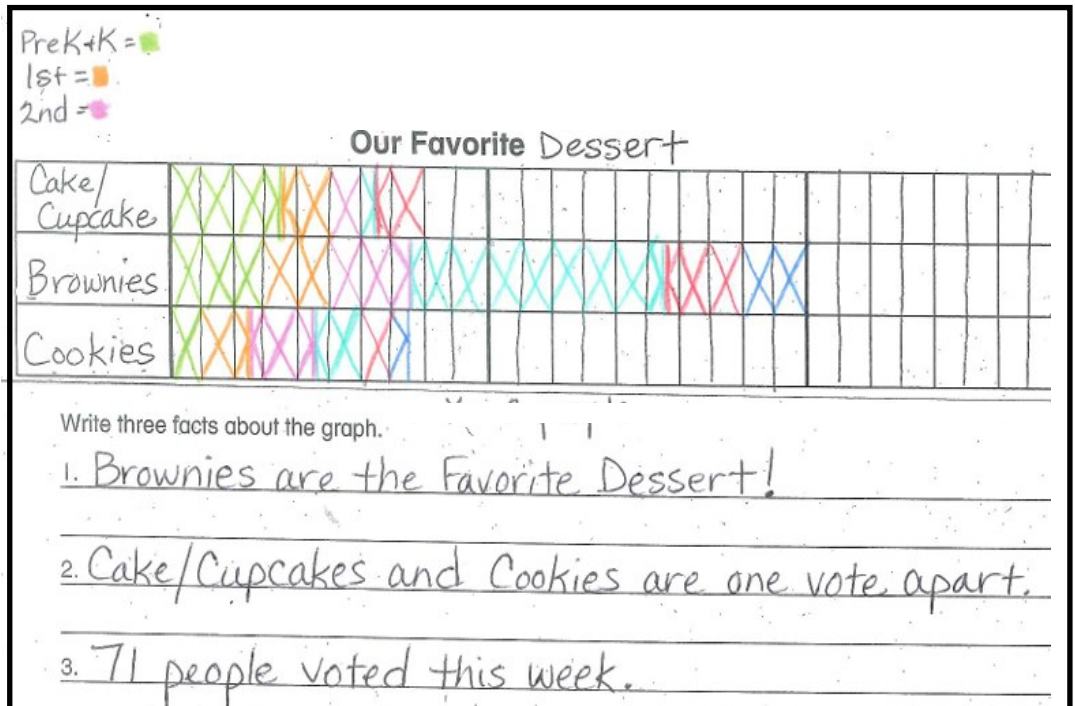 PreK+K =
1st =
2nd =
Our Favorite Dessert
Cake/
Cupcake
Brownies
Cookies
Write three facts about the graph.
1. Brownies are the Favorite Dessert!
2. Cake/Cupcakes and Cookies are one vote apart.
3. 71 people voted this week.